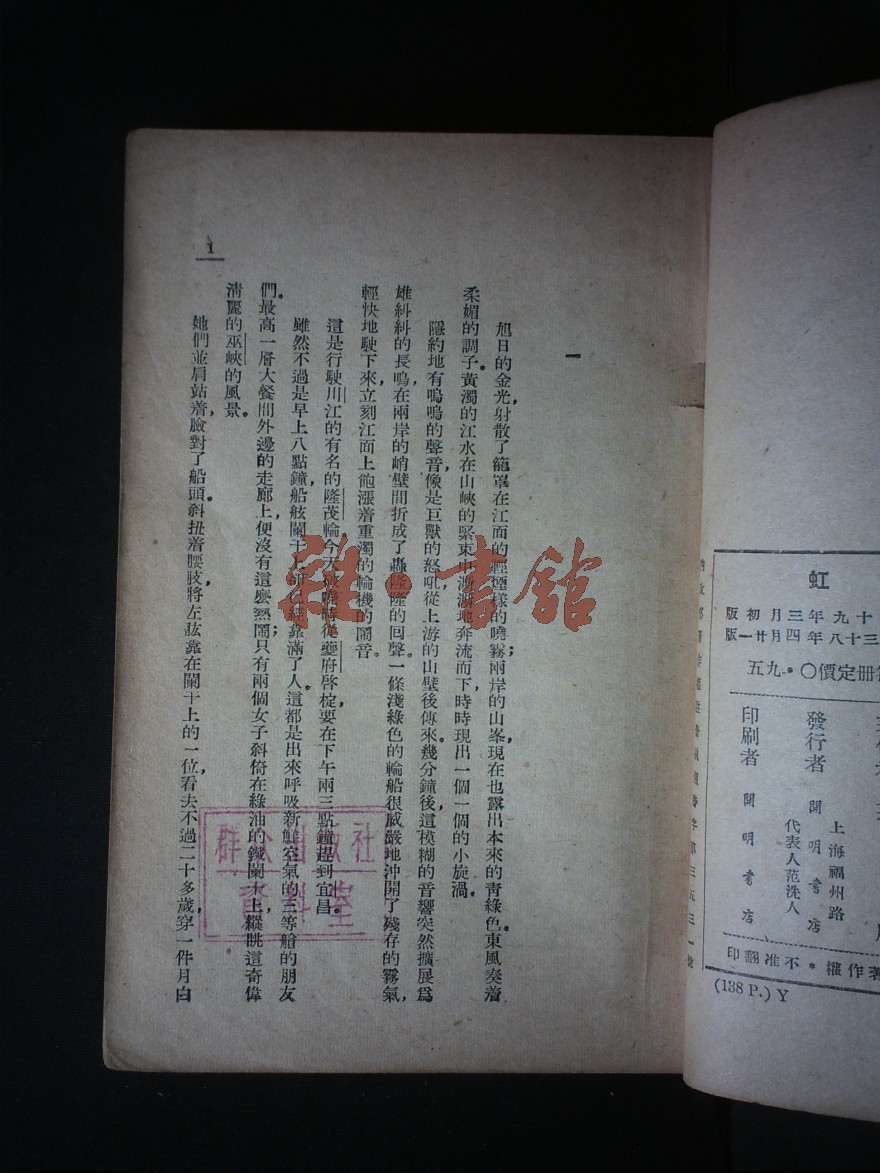 一
旭日的金光，射散了籠罩在江面的輕煙樣的曉霧；兩岸的山峯，現在也露出本來的靑綠色。東風奏着
柔媚的調子。黃濁的江水在山峽的緊束中澌澌地奔流而下，時時現出一個一個的小旋渦。
隱約地有嗚嗚的聲音，像是巨獸的怒吼，從上游的山壁後傳來。幾分鐘後，這模糊的音響突然擴展爲
雄糾糾的長鳴，在兩岸的峭壁間折成了轟隆隆的回聲。一條淺綠色的輪船很威嚴地沖開了殘存的霧氣，
輕快地駛下來，立刻江面上飽漲着重濁的輪機的鬧音。
這是行駛川江的有名的隆茂輪。今天破曉時從夔府啓椗，要在下午兩三點鐘趕到宜昌。
雖然不過是早上八點鐘，船舷闌干上却已經靠滿了人。這都是出來呼吸新鮮空氣的三等艙的朋友
們。最高一層大餐間外邊的走廊上，便沒有這麽熱鬧；只有兩個女子斜倚在綠油的鐵闌干上，縱眺這奇偉
淸麗的巫峽的風景。
她們並肩站着，臉對了船頭。斜扭着腰肢，將左肱靠在闌干上的一位，看去不過二十多歲，穿一件月白
1
雜·書館
群众出版社
資料室
虹
十九年三月初版
三十八年四月廿一版
册定價〇·九五
發行者 開明書店
上海福州路
代表人范洗人
印刷者 開明書店
著作權·不准翻印
(138 P.) Y